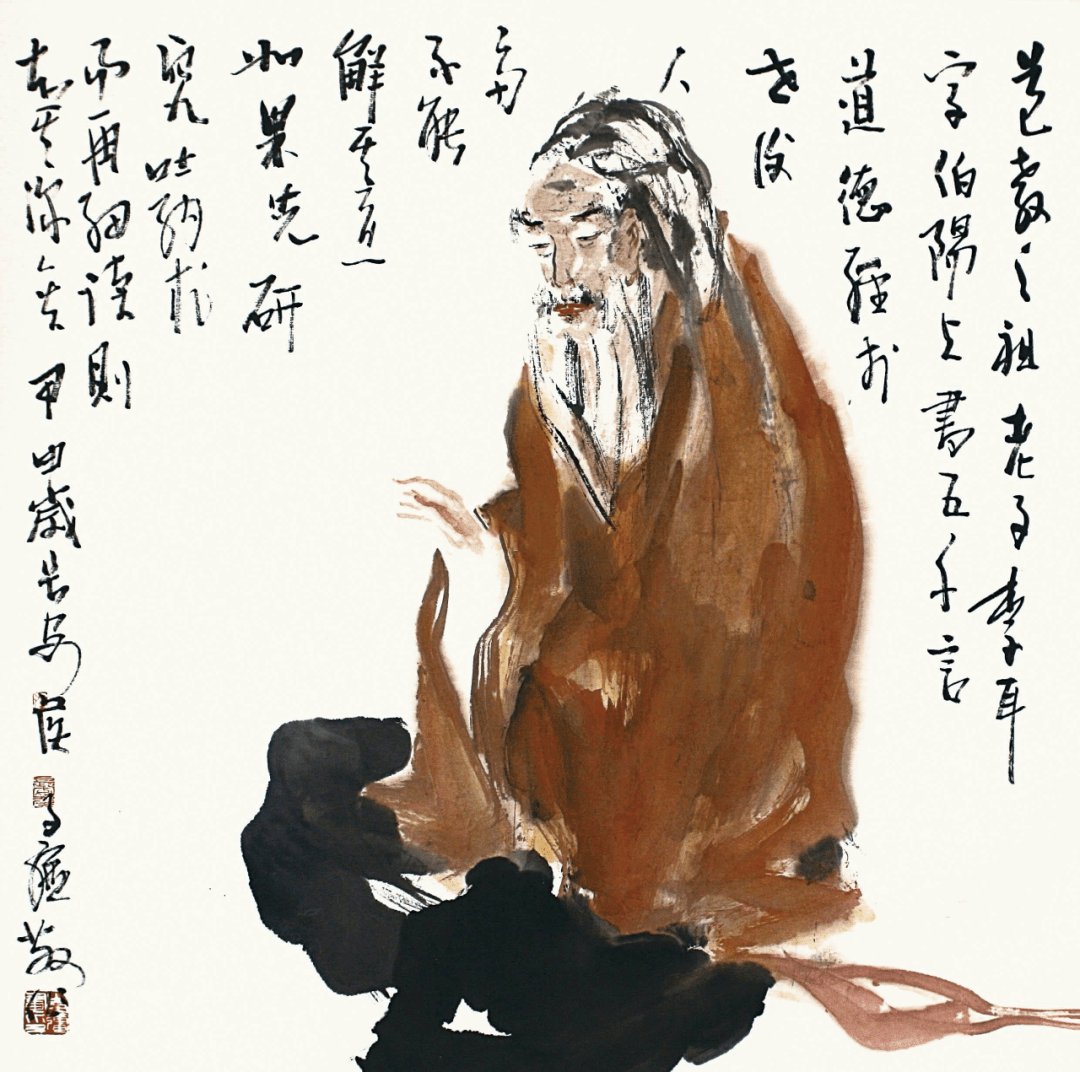 道教之祖老子李耳
字伯陽上書五千言
道德經於
世後
人
多
不能
解其
如果先研
究吐納术
而再細讀則
知其深矣 甲申歲長安